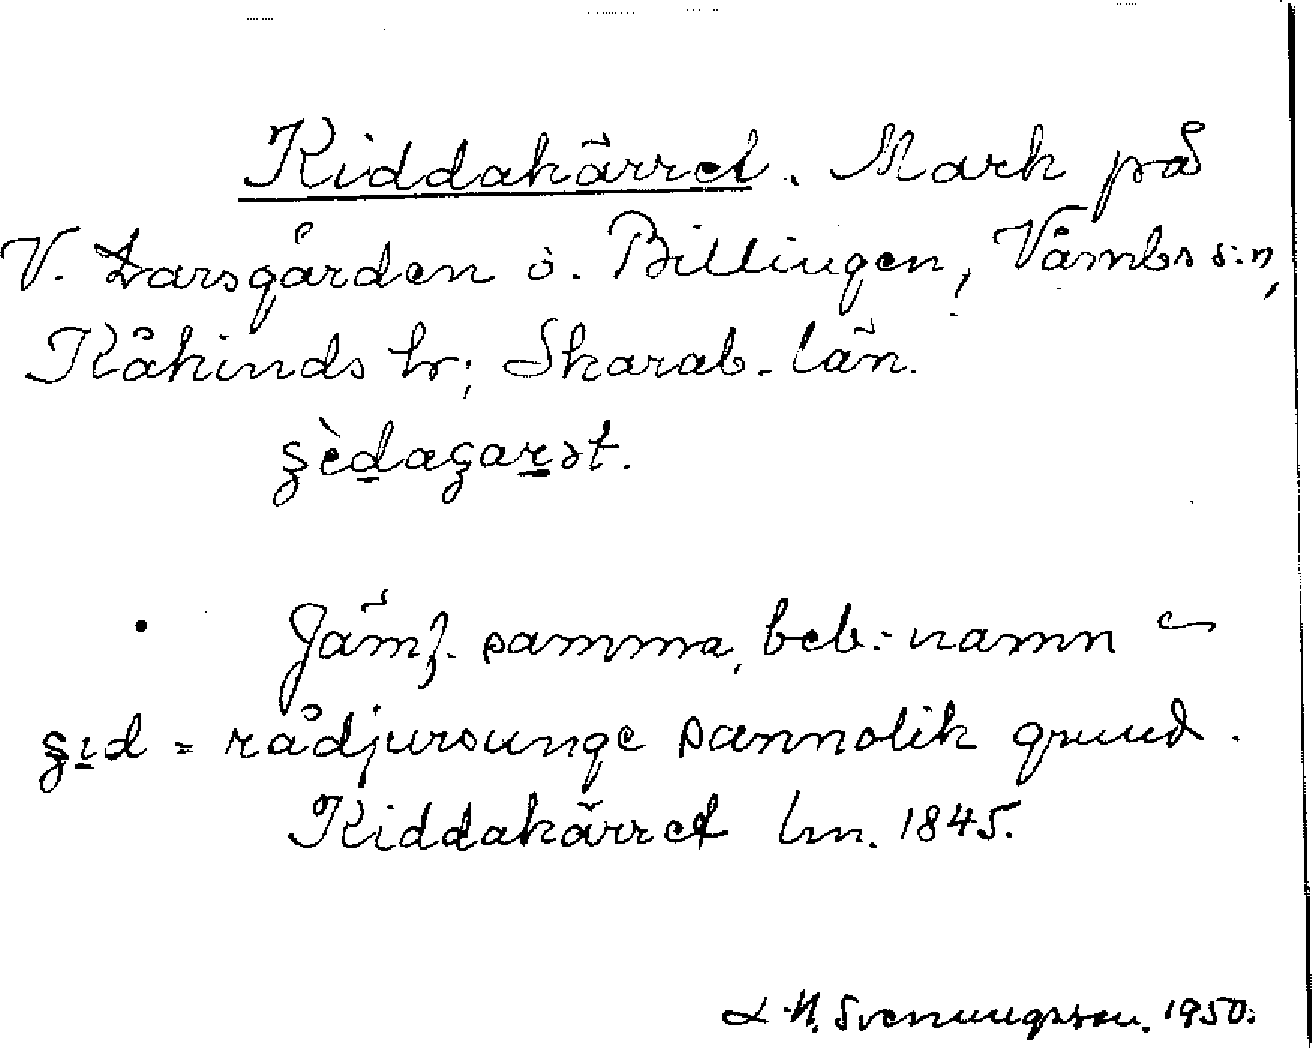 Kiddakärret. Mark på
V. Larsgården ö. Billingen, Våmbs s:n,
Kåkinds hr; Skarab. län.
ʂèdaʂarət.
Jämf. samma, beb:-namn –
ʂıd = rådjursunge sannolik grund.
Kiddakärret lm. 1845.
L. H. Svenungsson. 1950.